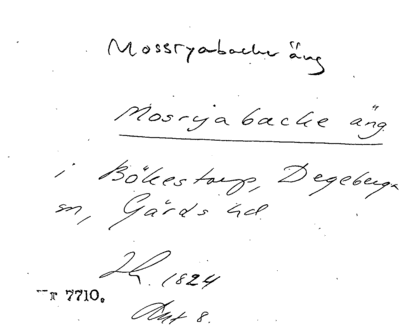 Mossryabacke äng
Mosryabacke äng
i Bökestorp, Degeberga
sn, Gärds hd
1824
7710.
Akt 8.